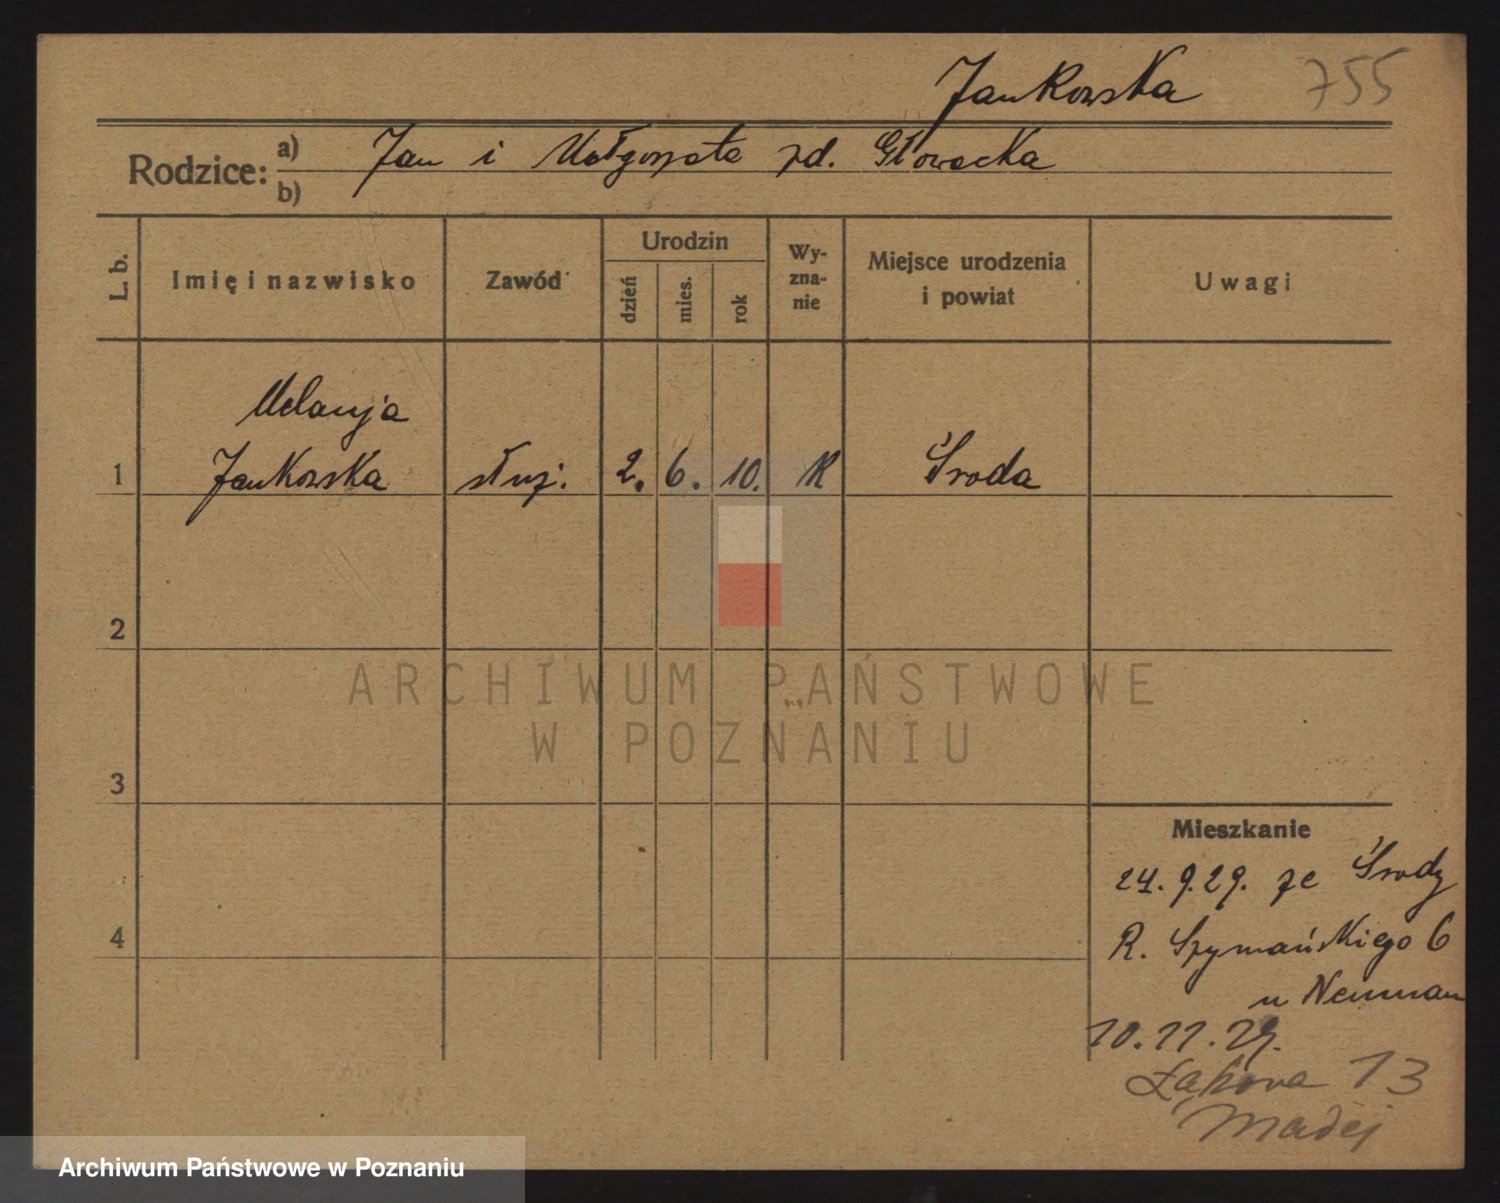 Jankowska 755
Rodzice: a) Jan i Małgorzata zd. Głowacka
b)
L. b. Imię i nazwisko Zawód Urodzin dzień mies. rok Wy-zna-nie Miejsce urodzenia i powiat Uwagi
Melanja
1 Jankowska służ. 2. 6. 10. K Środa
2
ARCHIWUM PAŃSTWOWE
W POZNANIU
3
Mieszkanie
24. 9. 29. ze Środy
4 R. Szymańskiego 6
u Neuman
10. 11. 29.
Łąkowa 13
Madej
Archiwum Państwowe w Poznaniu